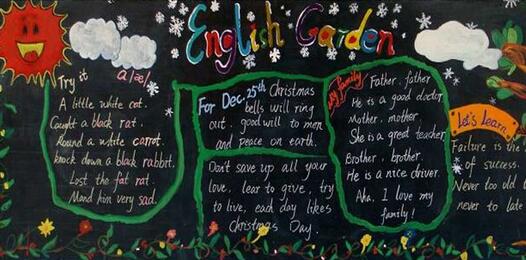 English Garden
Try it
a/æ/
A little white cat.
Caught a black rat.
Round a white carrot.
knock down a black rabbit.
Lost the fat rat.
Mand him very sad.
For Dec. 25th Christmas
bells will ring
out. good will to men
and peace on earth.
Don't save up all your
love, lear to give, try
to live, each day likes
Christmas Day.
my family
Father, father
He is a good doctor
Mother, mother
She is a great teacher
Brother, brother.
He is a nice driver.
Aha. I love my
family!
Let's Learn
Failure is the
of success.
Never too old
never to late